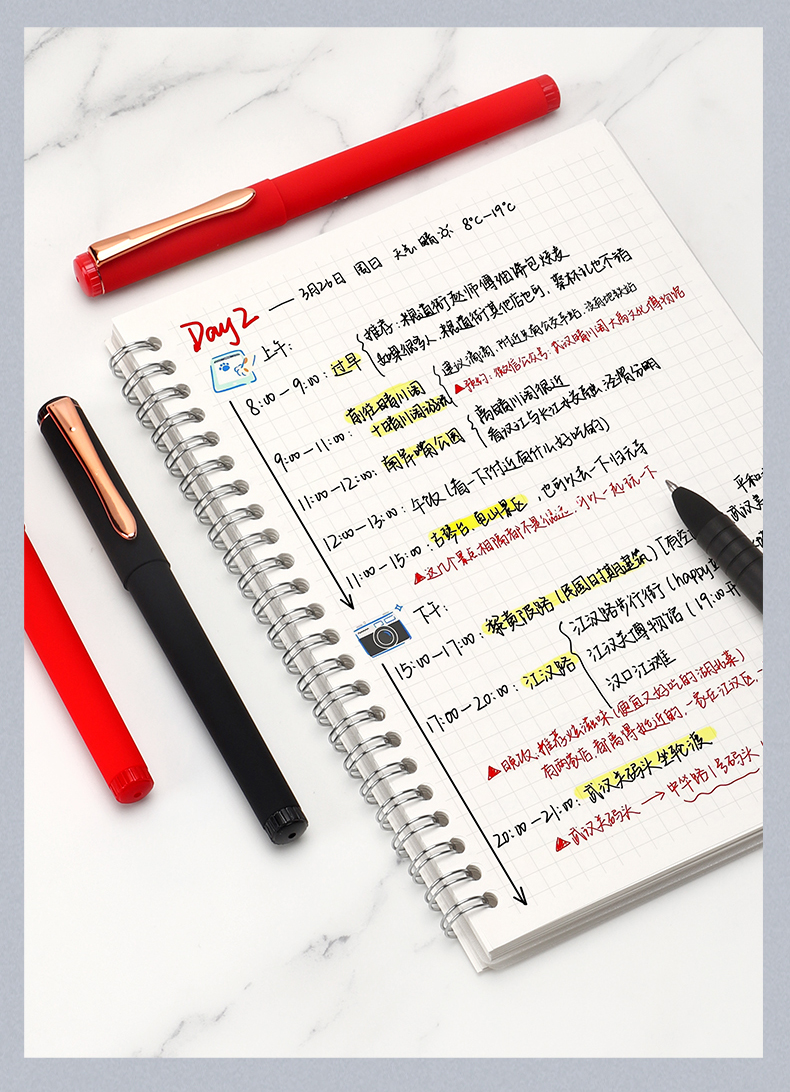 Day2 — 3月26日 周日 天气 晴 8℃-19℃
上午:
8:00-9:00: 过早
推荐: 粮道街赵师傅油饼包烧麦
如果很多人,粮道街其他店也可,栗林儿也不错
9:00-11:00: 前往晴川阁+晴川阁游玩
建议滴滴,附近只有公交车站,没有地铁站
▲预约:微信公众号:武汉晴川阁大禹文化博物馆
11:00-12:00: 南岸嘴公园
离晴川阁很近
看汉江与长江水交融,泾渭分明
12:00-13:00: 午饭(看一下附近有什么好吃的)
11:00-15:00: 古琴台、龟山景区,也可以去一下归元寺
▲这几个景点相隔都不是很远,可以一起玩一下
下午:
15:00-17:00: 黎黄陂路(民国时期建筑)[有空
平和
武汉美
17:00-20:00: 江汉路
江汉路步行街(happy
江汉关博物馆(19:00开
汉口江滩
▲晚饭:推荐 滋味(便宜又好吃的湖北菜)
有两家店,都离得挺近的,一家在江汉区,一
20:00-21:00: 武汉关码头坐轮渡
▲武汉关码头→中华路1号码头